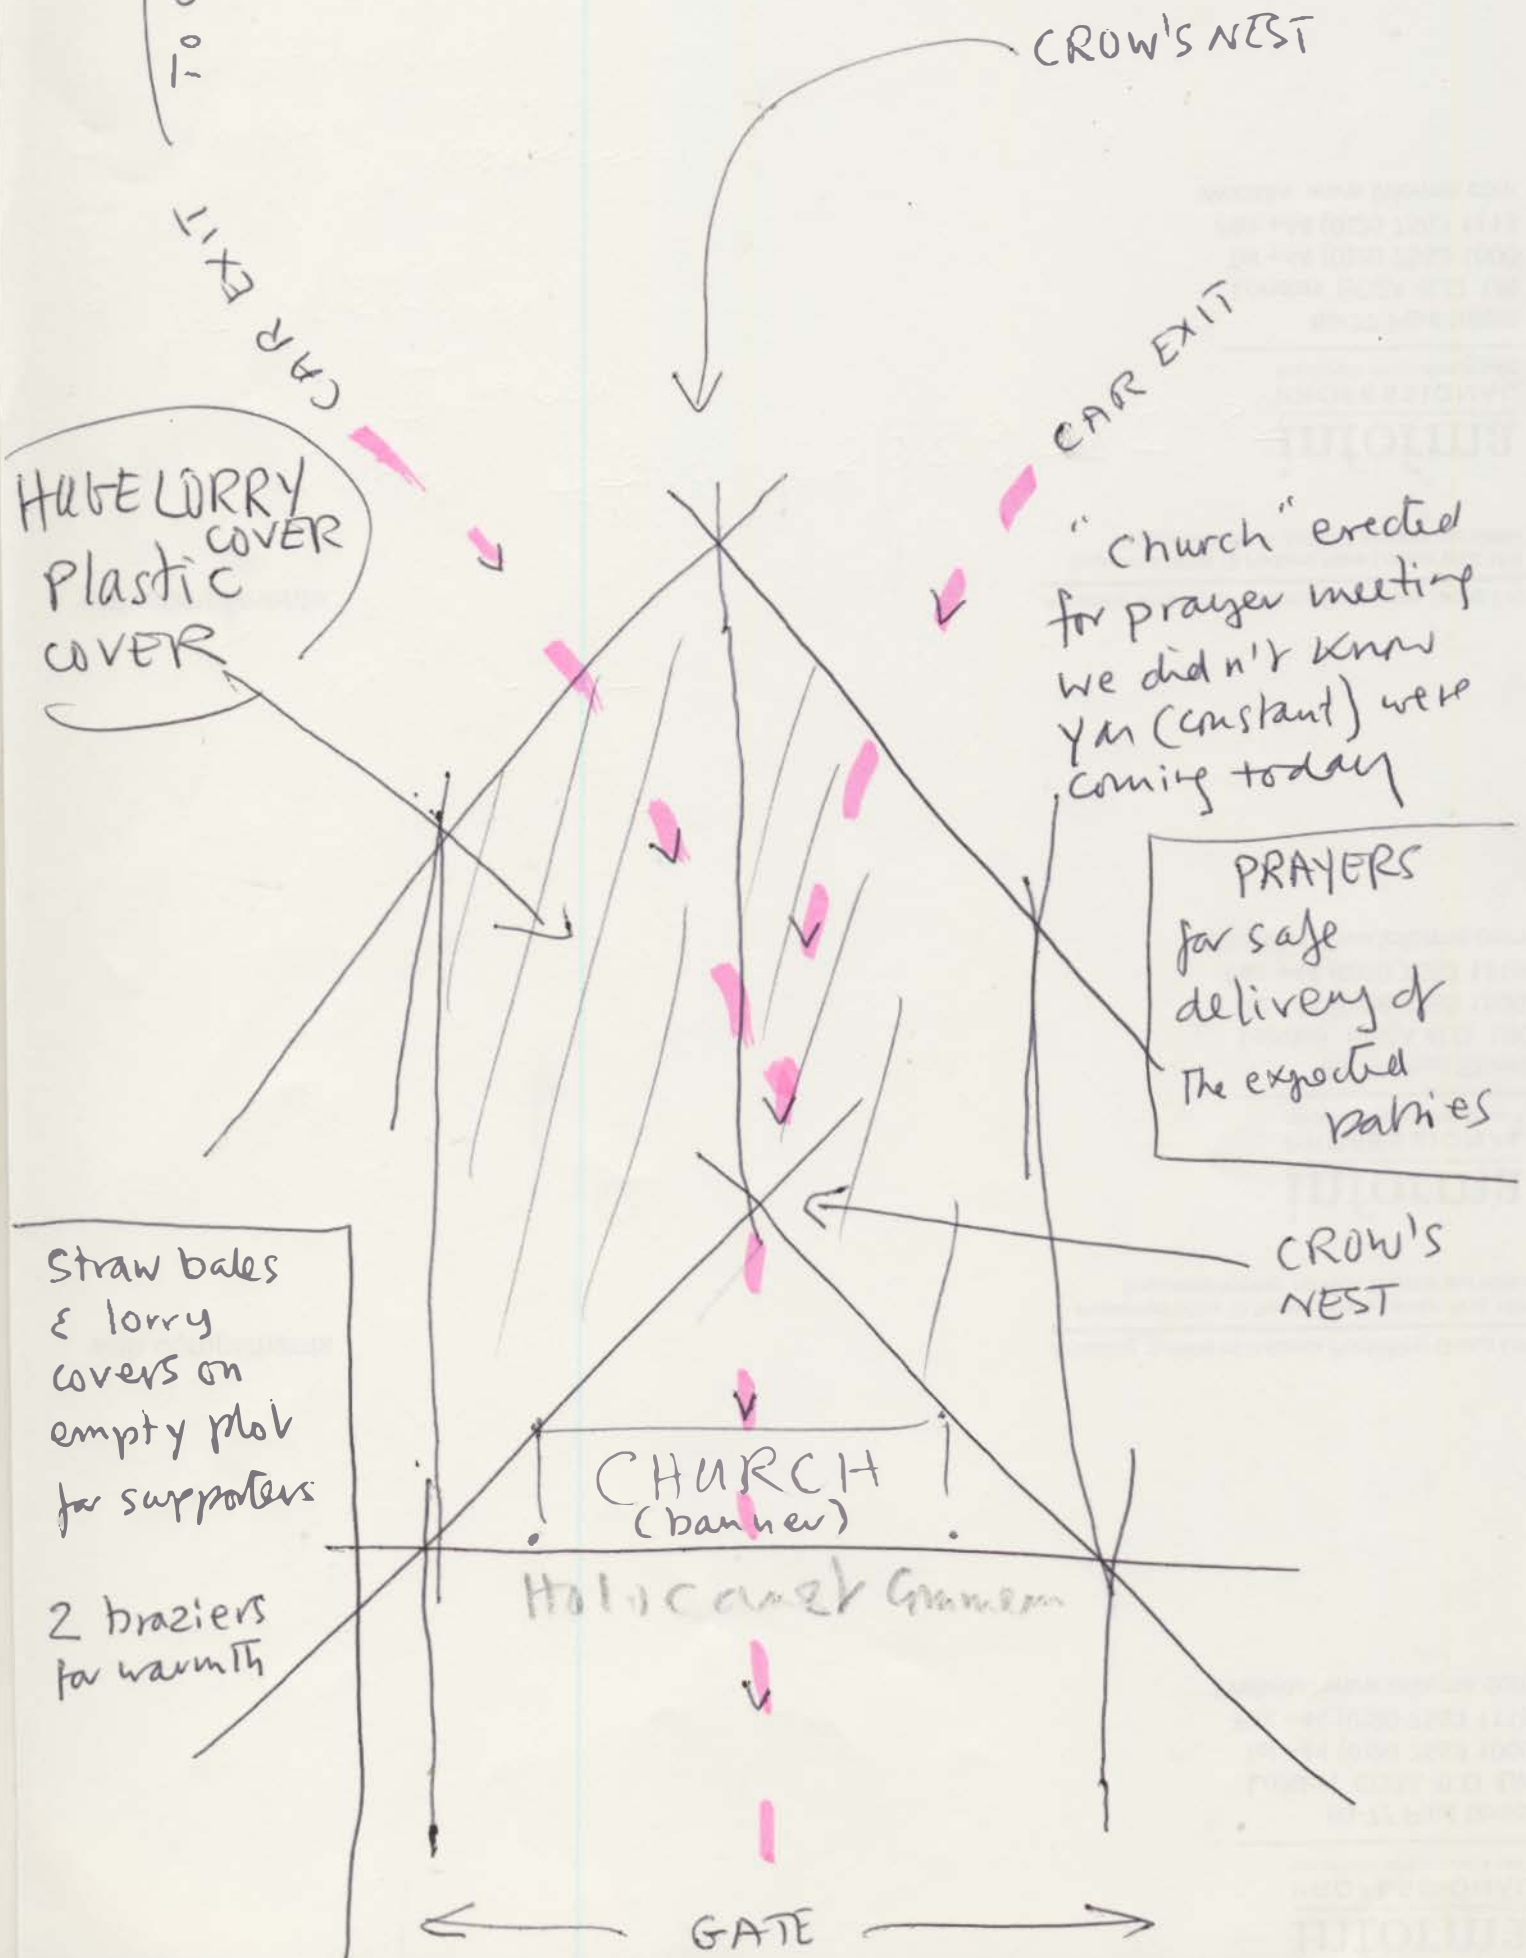 CROW'S NEST
CAR EXIT
CAR EXIT
HUGE LORRY
COVER
Plastic
COVER
"Church" erected
for prayer meeting
we didn't know
you (constant) were
coming today
PRAYERS
for safe
delivery of
The expected
babies
CROW'S
NEST
Straw bales
& lorry
covers on
empty plot
for supporters
2 braziers
for warmth
CHURCH
(banner)
Holocaust Commem
GATE